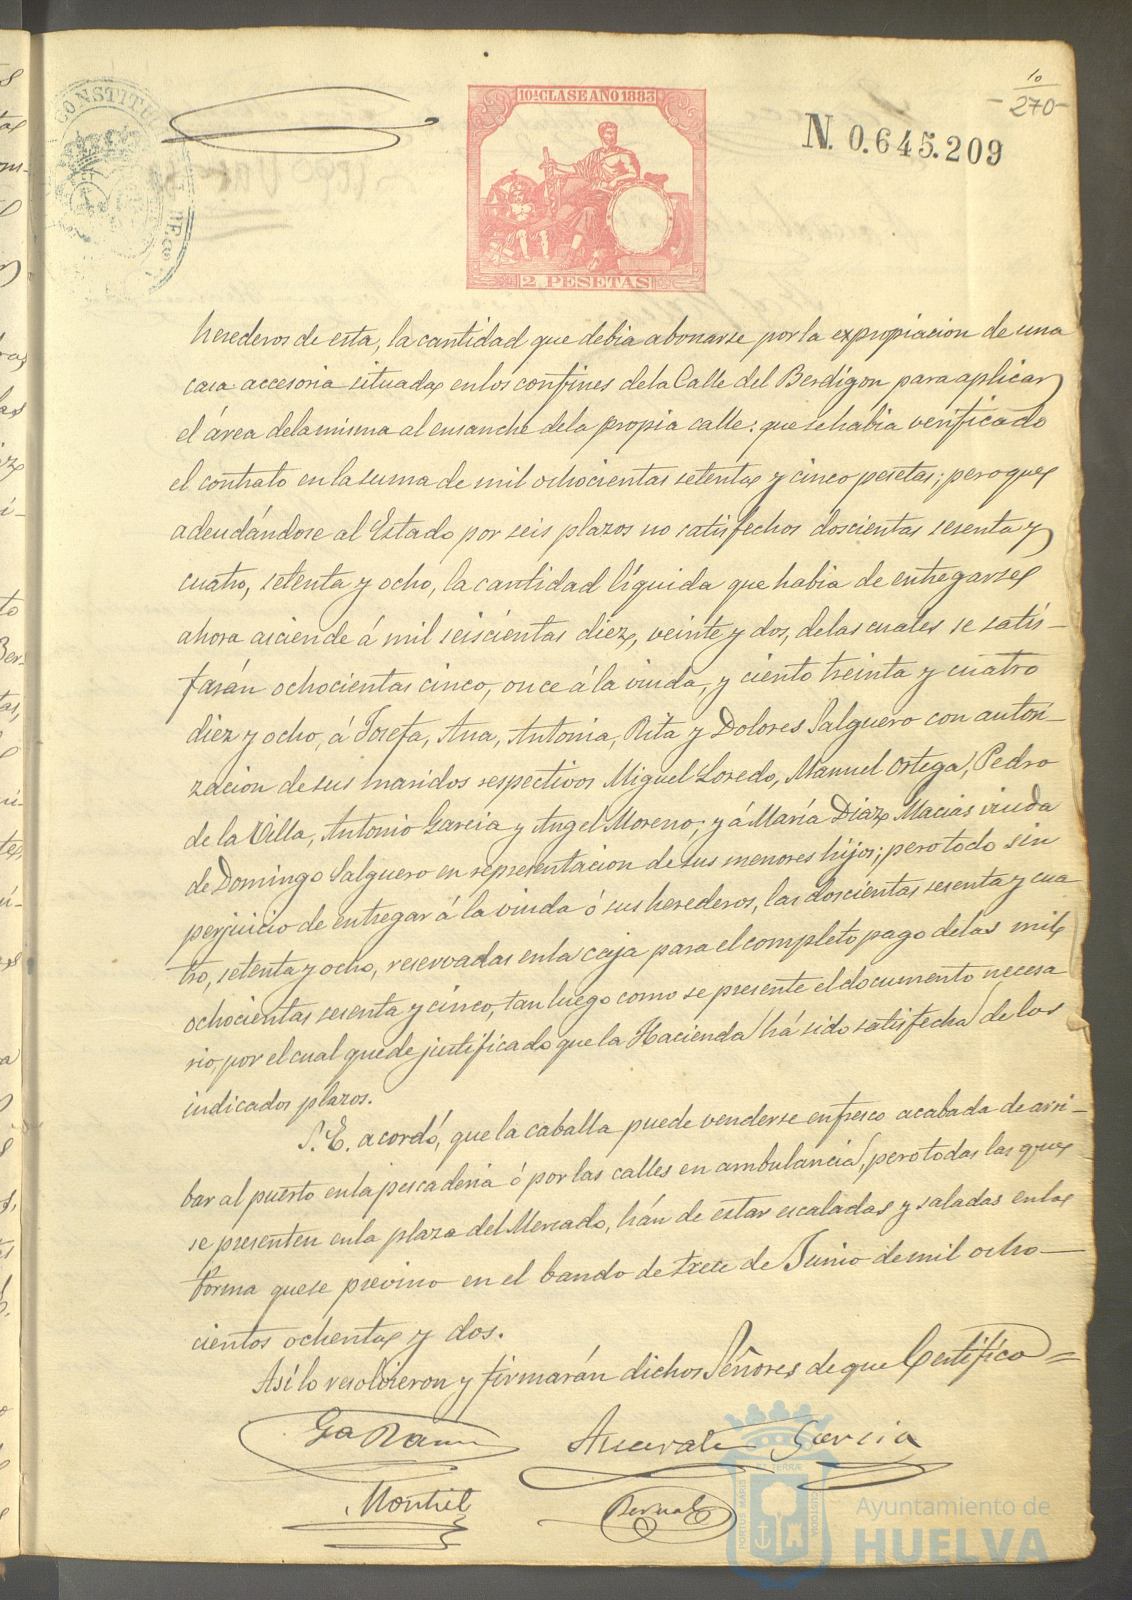 10
270
10ª CLASE AÑO 1883
N. 0.645.209
2 PESETAS
CONSTITU
herederos de esta, la cantidad que debia abonarse por la expropiacion de una
casa accesoria situada en los confines de la Calle del Berdígon para aplicar
el área de la misma al ensanche de la propia calle: que se habia verificado
el contrato en la suma de mil ochocientas setenta y cinco pesetas; pero que
adeudándose al Estado por seis plazos no satisfechos doscientas sesenta y
cuatro, setenta y ocho, la cantidad líquida que habia de entregarse
ahora asciende á mil seiscientas diez, veinte y dos, de las cuales se satis-
farán ochocientas cinco, once á la viuda, y ciento treinta y cuatro
diez y ocho, á Josefa, Ana, Antonia, Rita y Dolores Salguero con autori-
zacion de sus maridos respectivos Miguel Loredo, Manuel Ortega, Pedro
de la Villa, Antonio Garcia y Angel Moreno; y á María Diaz Macias viuda
de Domingo Salguero en representacion de sus menores hijos; pero todo sin
perjuicio de entregar á la viuda ó sus herederos, las doscientas sesenta y cua
tro, setenta y ocho, reservadas en la caja para el completo pago de las mil
ochocientas sesenta y cinco, tan luego como se presente el documento necesa
rio, por el cual quede justificado que la Hacienda há sido satisfecha de los
indicados plazos.
S. E. acordó, que la caballa puede venderse en fresco acabada de arri-
bar al puerto en la pescaderia ó por las calles en ambulancia, pero todas las que
se presenten en la plaza del Mercado, hán de estar escaladas y saladas en la
forma que se previno en el bando de trece de Junio de mil ocho-
cientos ochenta y dos.
Así lo resolvieron y firmarán dichos Señores de que Certifico=
Garcia
Montiel
Bernal
PORTUS MARIS ET TERRÆ CUSTODIA
Ayuntamiento de
HUELVA